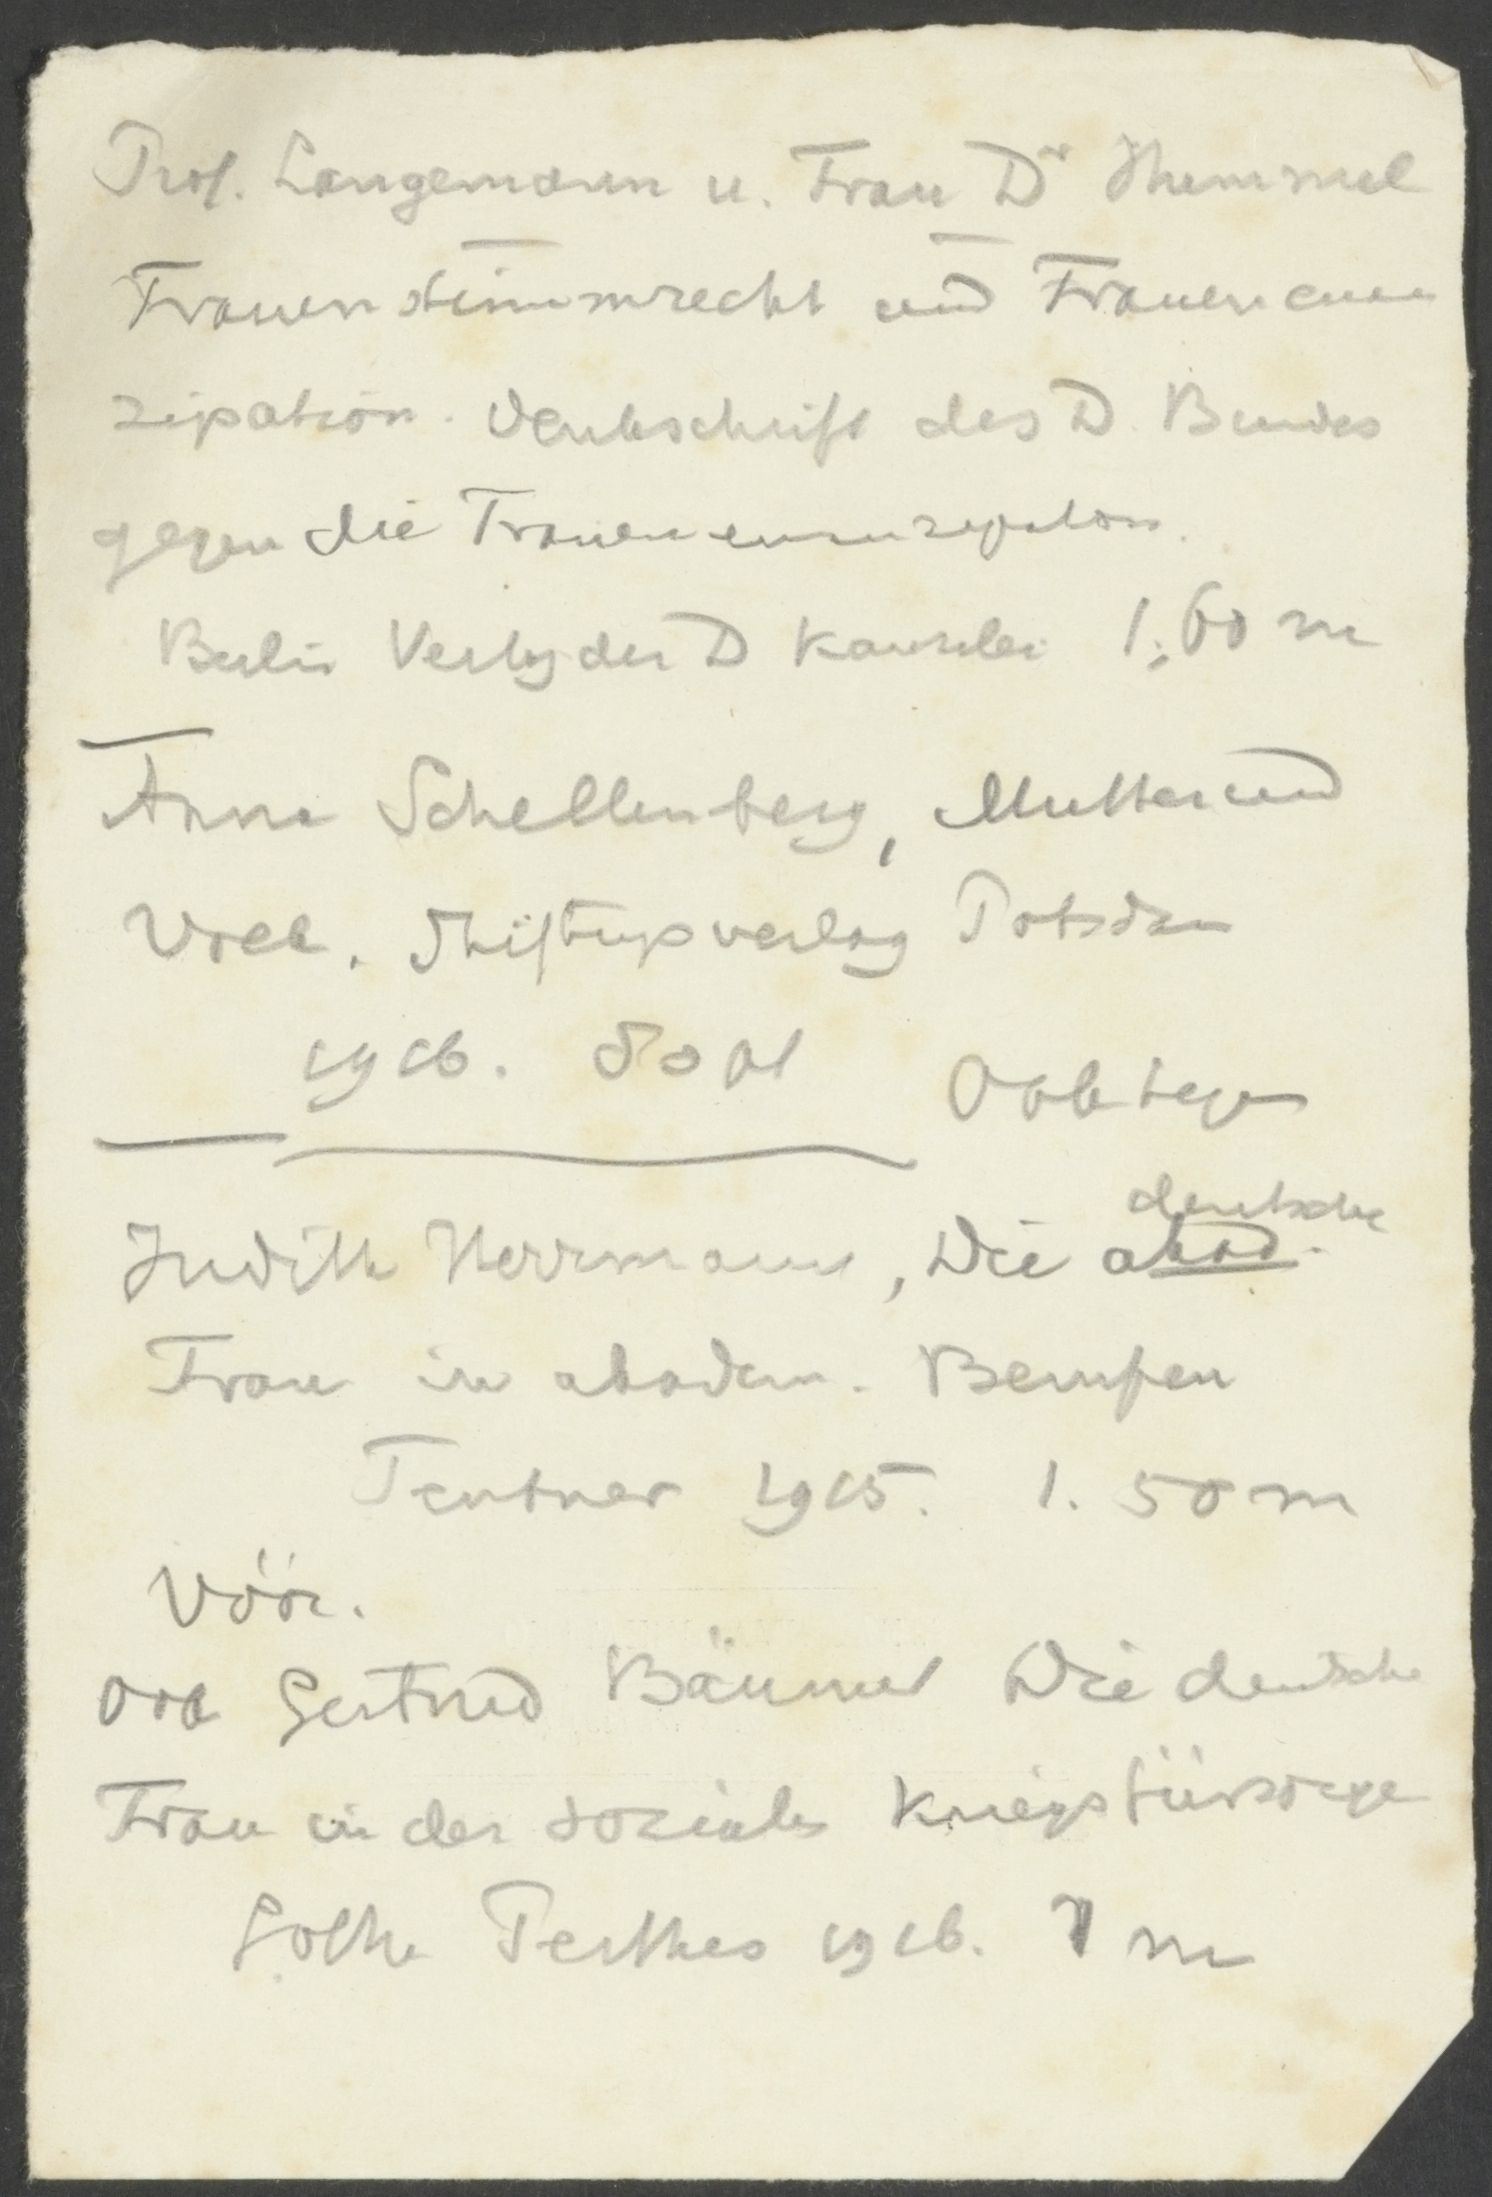 Prof. Langemann u. Frau Dr Hummel
Frauenstimmrecht und Fraueneman
zipation. Denkschrift des D. Bundes
gegen die Frauenemanzipation.
Berlin Verlag der D Kanzlei 1,60 M
Anna Schellenberg, Mutter und
Volk. Stiftungsverlag Potsdam
1916. 80 Pf
Judith Herrmann, Die deutsche
Frau in akadem. Berufen
Teubner 1915. 1.50 M
Gertrud Bäumer Die deutsche
Frau in der sozialen Kriegsfürsorge
Gotha Perthes 1916. 1 M